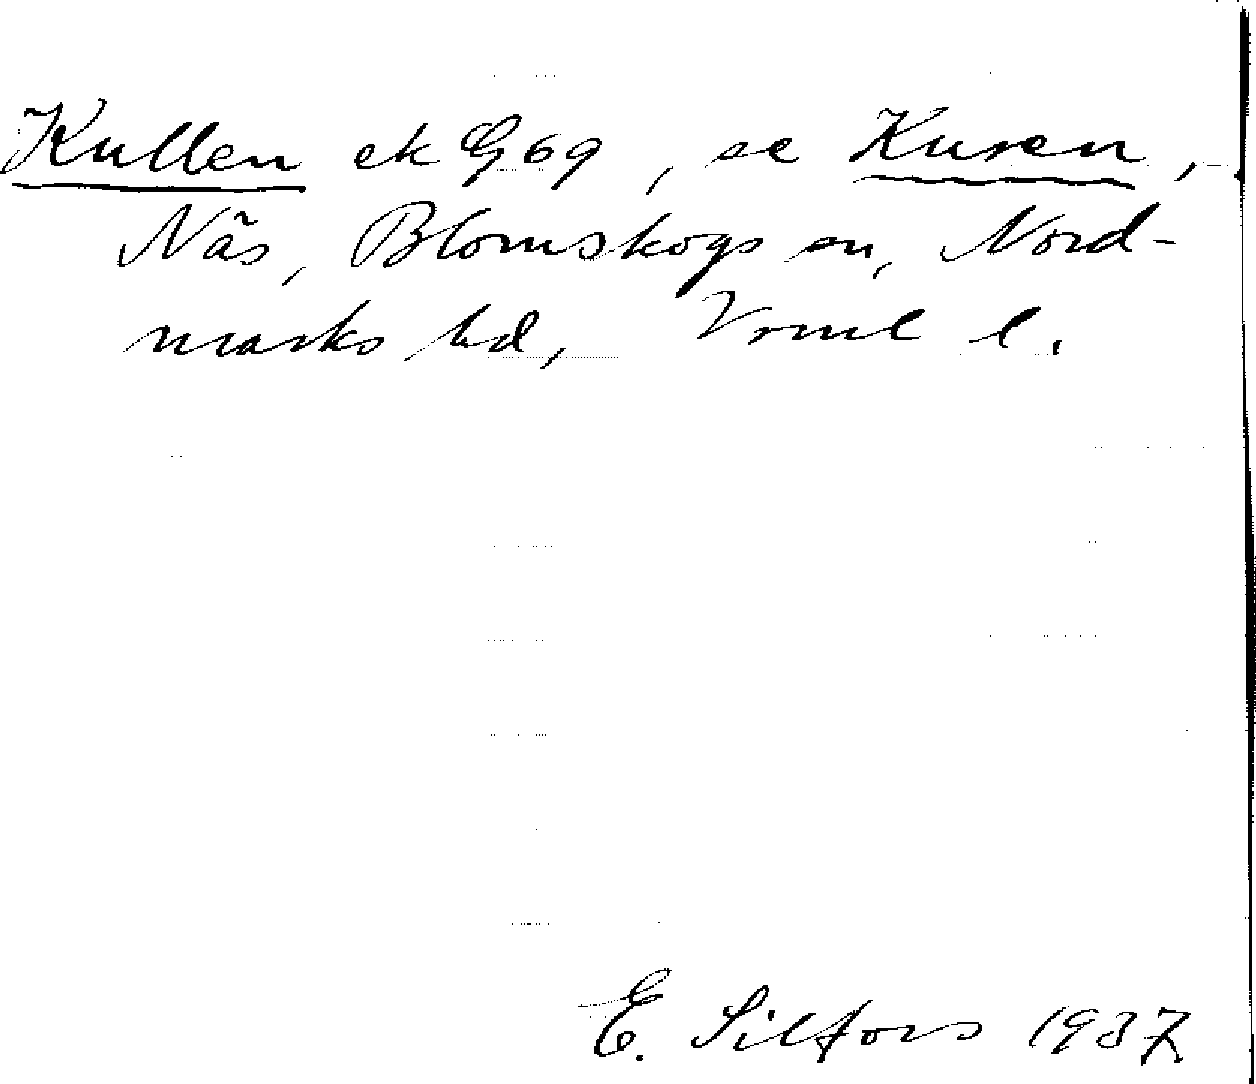 Kullen ek G 69, se Kusen,
Näs, Blomskogs sn, Nord-
marks hd, Vrml l.
E. Silfors 1937